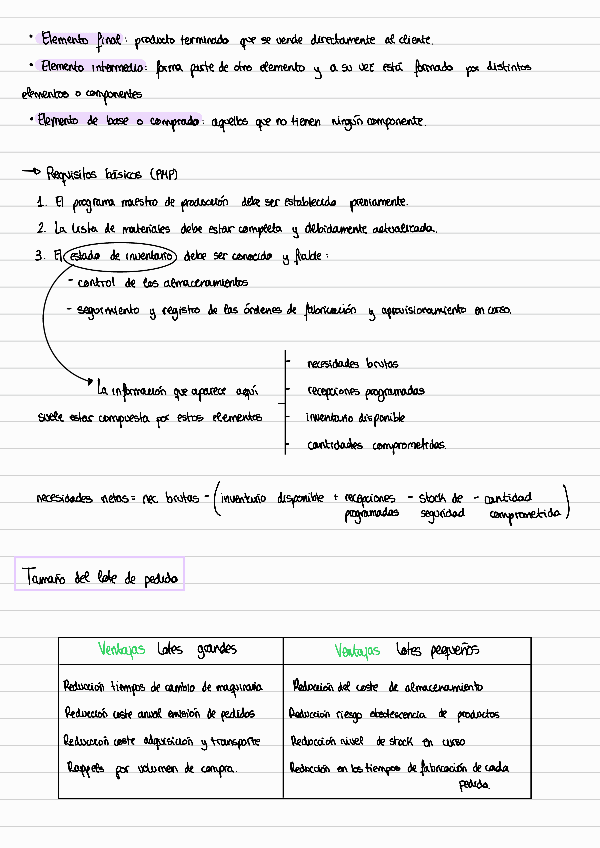 • Elemento final: producto terminado que se vende directamente al cliente.
• Elemento intermedio: forma parte de otro elemento y a su vez está formado por distintos
elementos o componentes
• Elemento de base o comprado: aquellos que no tienen ningún componente.
→ Requisitos básicos (PMP)
1. El programa maestro de producción debe ser establecido previamente.
2. La lista de materiales debe estar completa y debidamente actualizada.
3. El estado de inventario debe ser conocido y fiable:
- control de los almacenamientos
- seguimiento y registro de las órdenes de fabricación y aprovisionamiento en curso.
La información que aparece aquí
suele estar compuesta por estos elementos
- necesidades brutas
- recepciones programadas
- inventario disponible
- cantidades comprometidas.
necesidades netas = nec. brutas - (inventario disponible + recepciones programadas - stock de seguridad - cantidad comprometida)
Tamaño del lote de pedido
Ventajas lotes grandes
Reducción tiempos de cambio de maquinaria
Reducción coste anual emisión de pedidos
Reducción coste adquisición y transporte
Rappels por volumen de compra.
Ventajas lotes pequeños
Reducción del coste de almacenamiento
Reducción riesgo obsolescencia de productos
Reducción nivel de stock en curso
Reducción en los tiempos de fabricación de cada
pedido.